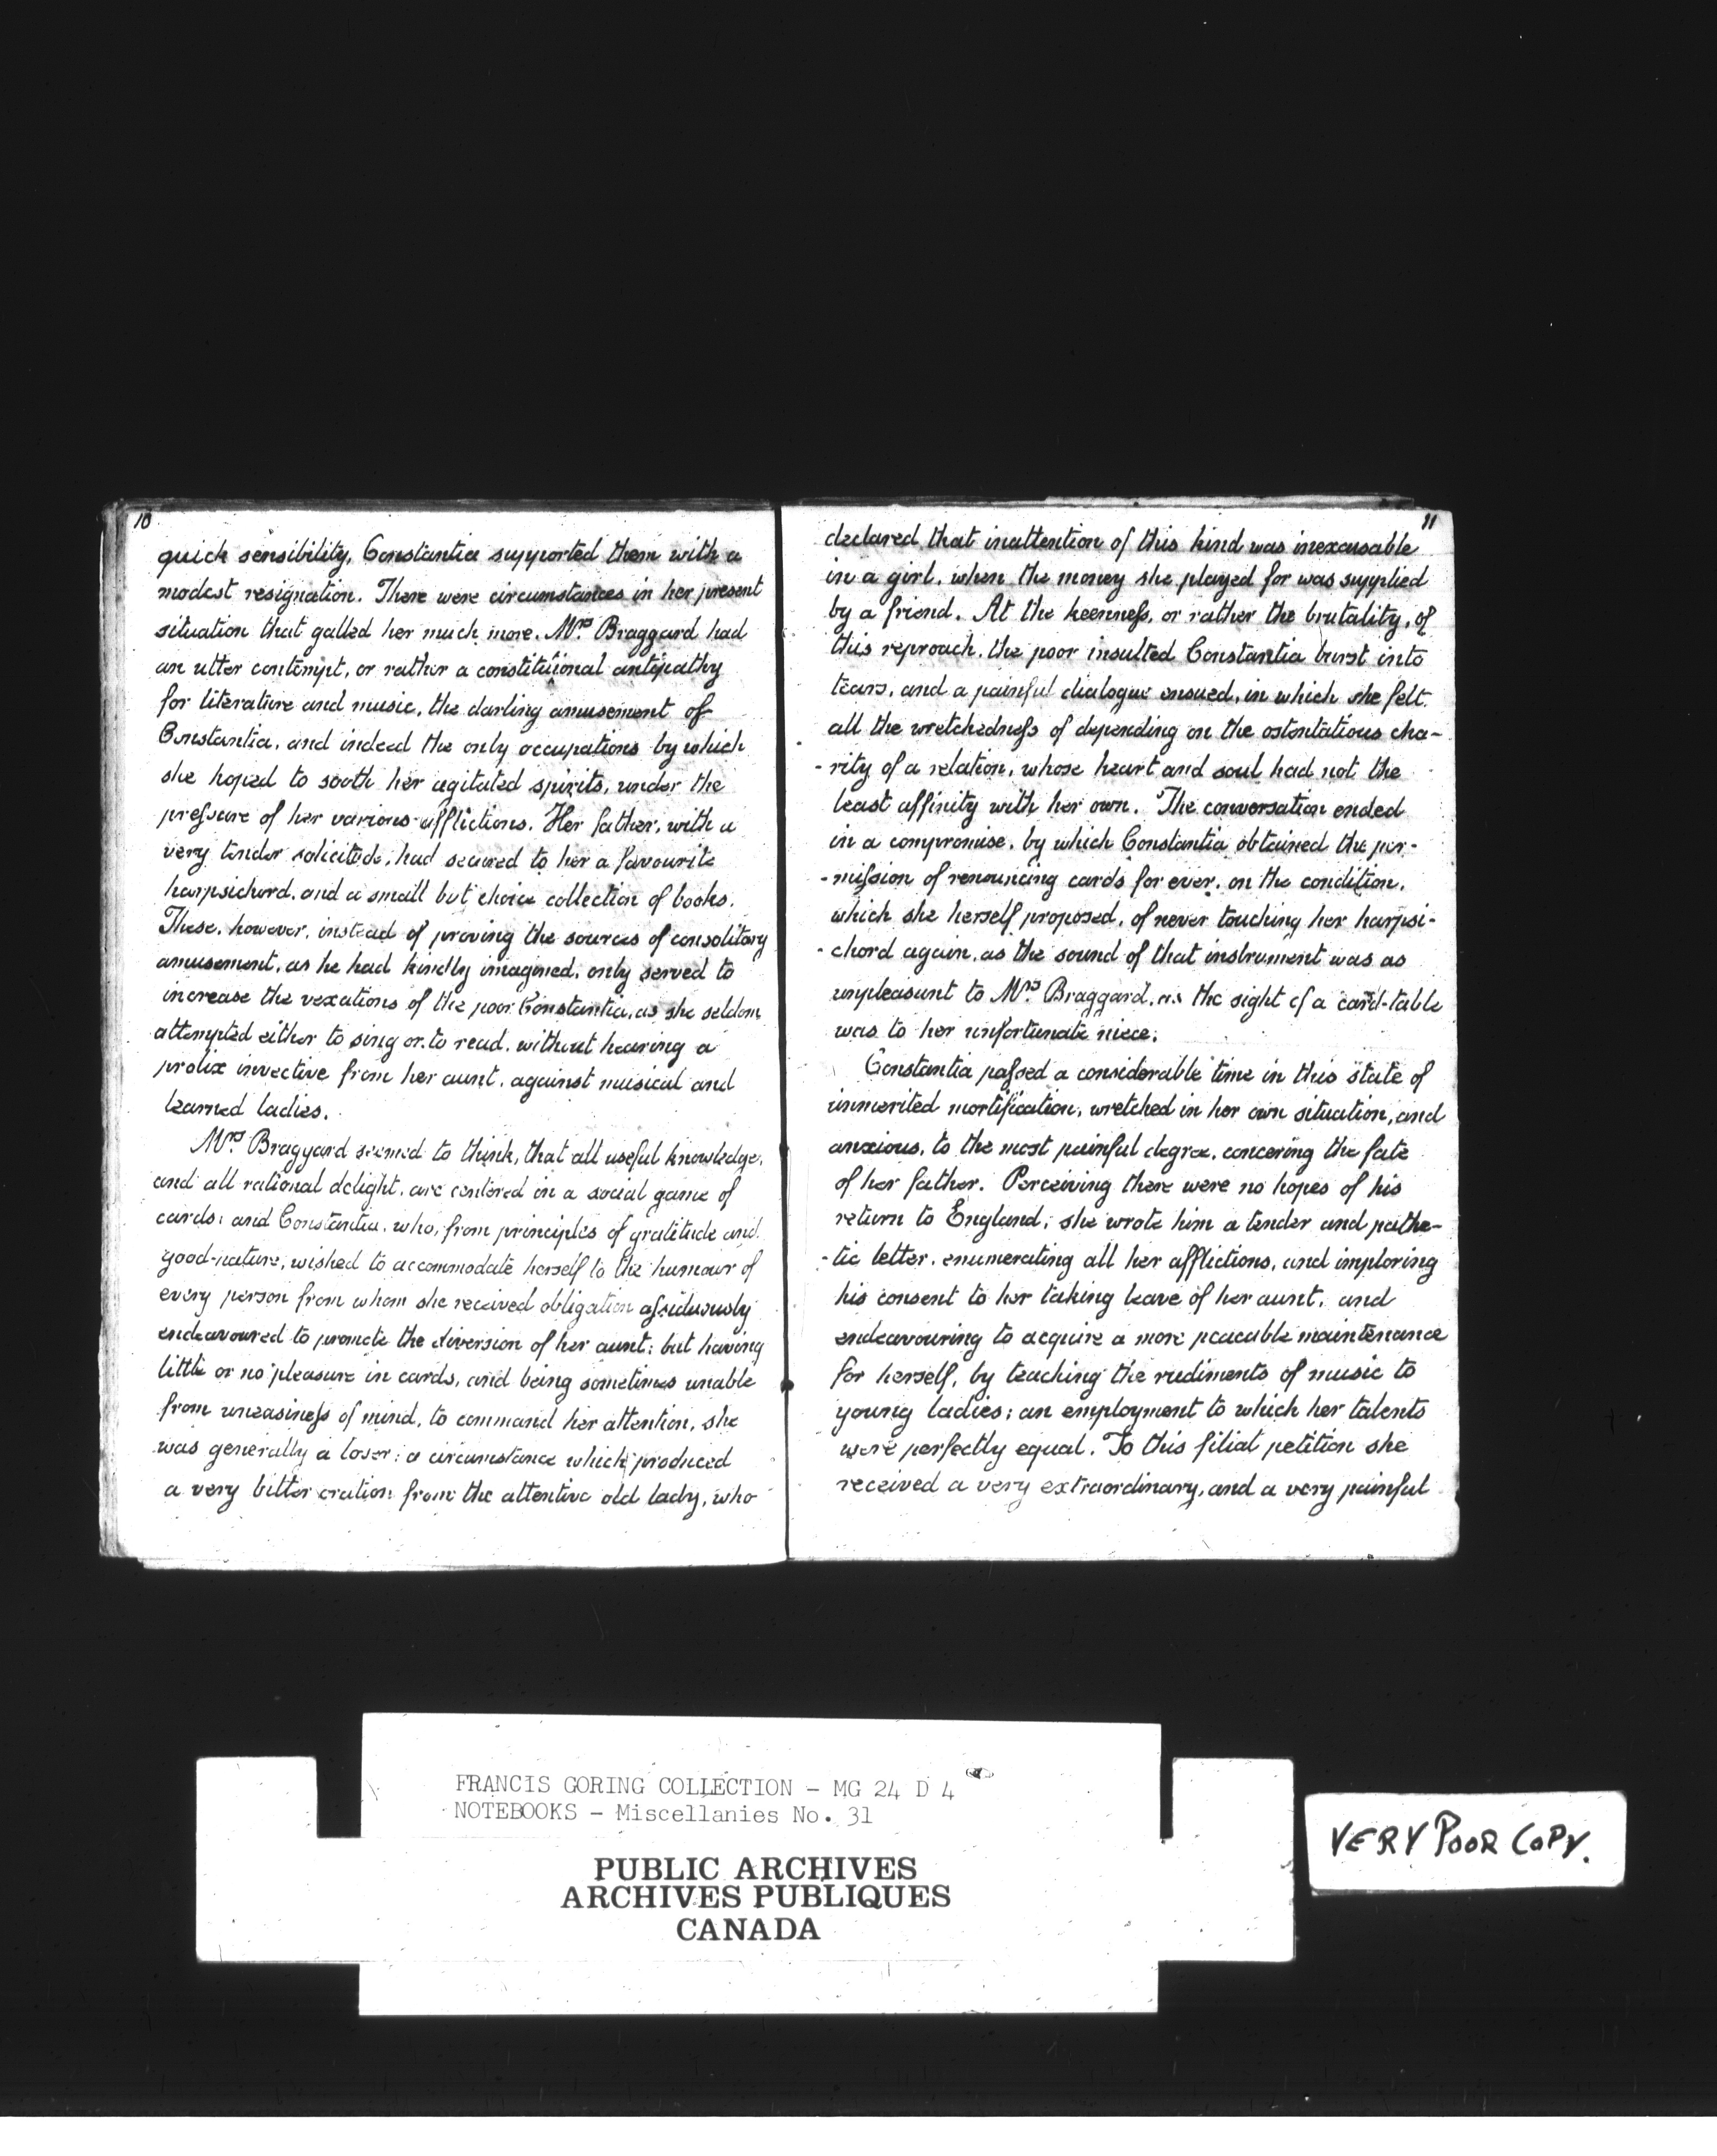 10
quick sensibility, Constantia supported them with a
modest resignation. There were circumstances in her present
situation that galled her much more. Mrs. Braggard had
an utter contempt, or rather a constitutional antipathy
for literature and music, the darling amusement of
Constantia, and indeed the only occupations by which
she hoped to sooth her agitated spirits, under the
preſsure of her various afflictions. Her father, with a
very tender solicitude, had secured to her a favourite
harpsichord, and a small but choice collection of books.
These, however, instead of proving the sources of consolitary
amusement, as he had kindly imagined, only served to
increase the vexations of the poor Constantia, as she seldom
attempted either to sing or to read, without hearing a
prolix invective from her aunt, against musical and
learned ladies.
Mrs. Braggard seemed to think, that all useful knowledge,
and all rational delight, are centered in a social game of
cards; and Constantia, who, from principles of gratitude and
good-nature, wished to accommodate herself to the humour of
every person from whom she received obligation aſsiduously
endeavoured to promote the diversion of her aunt; but having
little or no pleasure in cards, and being sometimes unable
from uneasineſs of mind, to command her attention, she
was generally a loser; a circumstance which produced
a very bitter oration from the attentive old lady, who
11
declared that inattention of this kind was inexcusable
in a girl, when the money she played for was supplied
by a friend. At the keenneſs, or rather the brutality, of
this reproach, the poor insulted Constantia burst into
tears, and a painful dialogue ensued, in which she felt
all the wretchedneſs of depending on the ostentatious cha-
-rity of a relation, whose heart and soul had not the
least affinity with her own. The conversation ended
in a compromise, by which Constantia obtained the per-
-miſsion of renouncing cards for ever, on the condition,
which she herself proposed, of never touching her harpsi-
-chord again, as the sound of that instrument was as
unpleasant to Mrs. Braggard, as the sight of a card-table
was to her unfortunate niece.
Constantia paſsed a considerable time in this state of
unmerited mortification, wretched in her own situation, and
anxious, to the most painful degree, concering the fate
of her father. Perceiving there were no hopes of his
return to England; she wrote him a tender and pathe-
-tic letter, enumerating all her afflictions, and imploring
his consent to her taking leave of her aunt, and
endeavouring to acquire a more peaceable maintenance
for herself, by teaching the rudiments of music to
young ladies; an employment to which her talents
were perfectly equal. To this filial petition she
received a very extraordinary, and a very painful
FRANCIS GORING COLLECTION - MG 24 D 4
NOTEBOOKS - Miscellanies No. 31
PUBLIC ARCHIVES
ARCHIVES PUBLIQUES
CANADA
VERY POOR COPY.